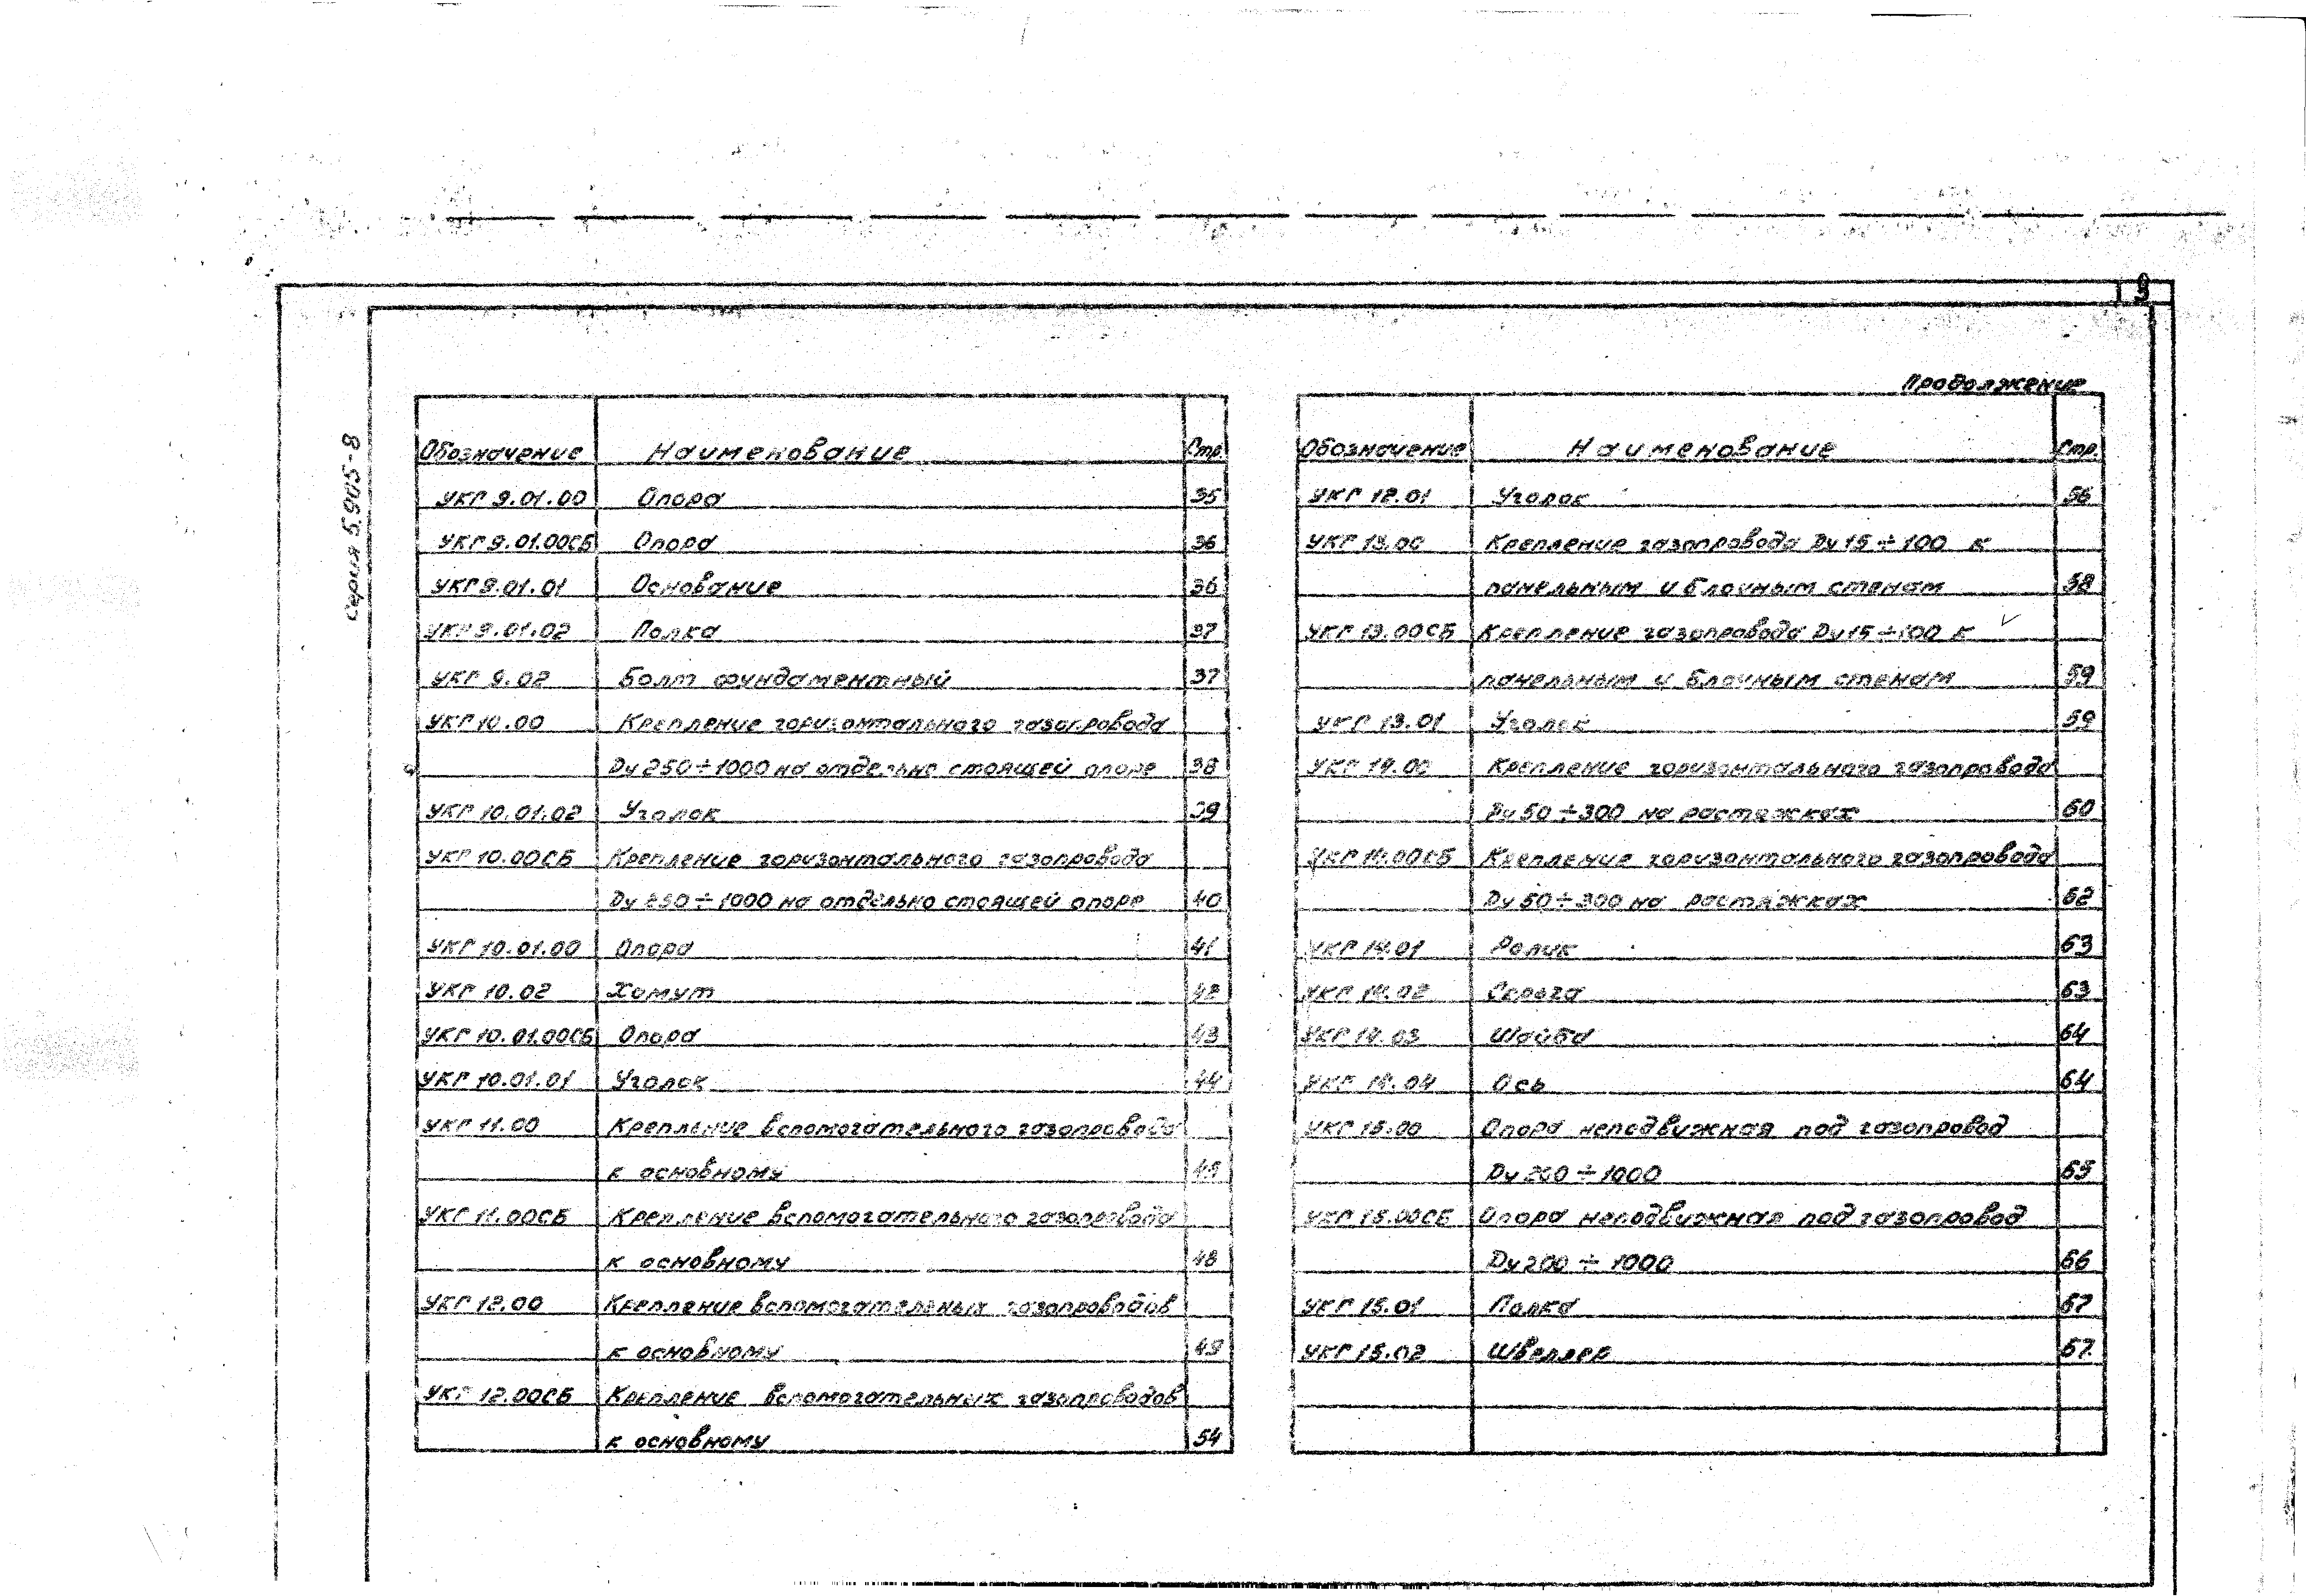 3
Продолжение
Серия 5.905-8
Обозначение Наименование Стр.
УКГ 9.01.00 Опора 35
УКГ 9.01.00СБ Опора 36
УКГ 9.01.01 Основание 36
УКГ 9.01.02 Полка 37
УКГ 9.02 Болт фундаментный 37
УКГ 10.00 Крепление горизонтального газопровода
Ду 250÷1000 на отдельно стоящей опоре 38
УКГ 10.01.02 Уголок 39
УКГ 10.00СБ Крепление горизонтального газопровода
Ду 250÷1000 на отдельно стоящей опоре 40
УКГ 10.01.00 Опора 41
УКГ 10.02 Хомут 42
УКГ 10.01.00СБ Опора 43
УКГ 10.01.01 Уголок 44
УКГ 11.00 Крепление вспомогательного газопровода
к основному
УКГ 11.00СБ Крепление вспомогательного газопровода
к основному 48
УКГ 12.00 Крепление вспомогательных газопроводов
к основному 49
УКГ 12.00СБ Крепление вспомогательных газопроводов
к основному 54
Обозначение Наименование Стр.
УКГ 12.01 Уголок 56
УКГ 13.00 Крепление газопровода Ду 15÷100 к
панельным и блочным стенам 58
УКГ 13.00СБ Крепление газопровода Ду 15÷100 к
панельным и блочным стенам 59
УКГ 13.01 Уголок 59
УКГ 14.00 Крепление горизонтального газопровода
Ду 50÷300 на растяжках 60
УКГ 14.00СБ Крепление горизонтального газопровода
Ду 50÷300 на растяжках 62
УКГ 14.01 Ролик 63
УКГ 14.02 Серьга 63
УКГ 14.03 Шайба 64
УКГ 14.04 Ось 64
УКГ 15.00 Опора неподвижная под газопровод
Ду 200÷1000 65
УКГ 15.00СБ Опора неподвижная под газопровод
Ду 200÷1000 66
УКГ 15.01 Полка 67
УКГ 15.02 Швеллер 67